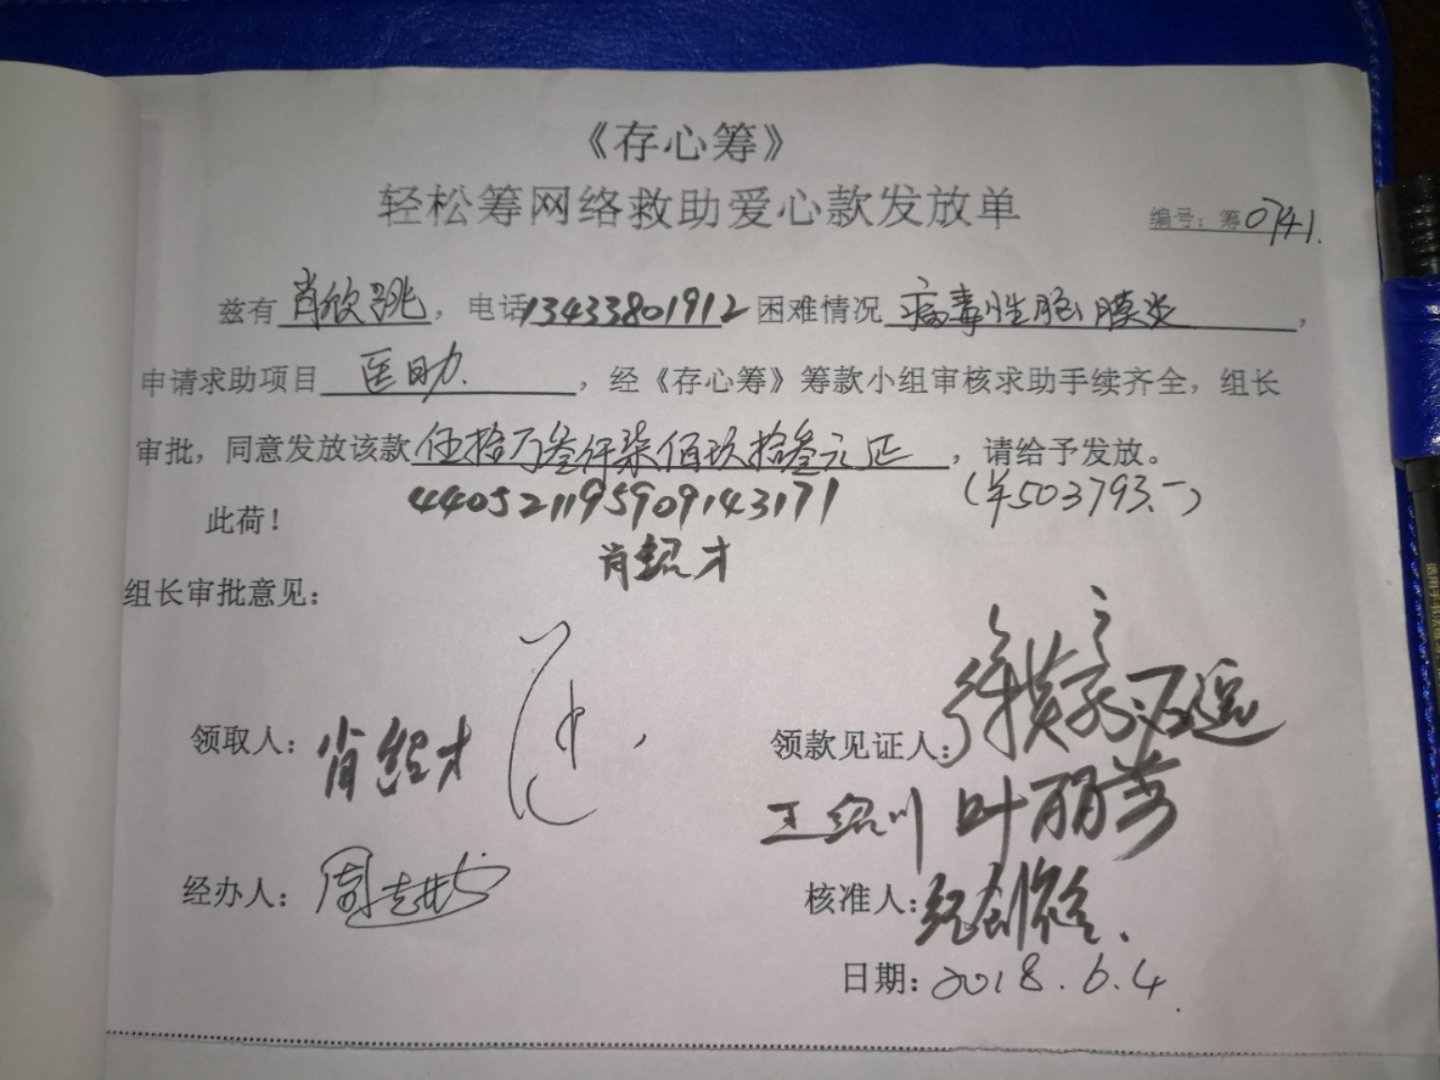 《存心筹》
轻松筹网络救助爱心款发放单
编号：筹0741.
兹有肖欣跳，电话13433801912困难情况病毒性脑膜炎，
申请求助项目医助.，经《存心筹》筹款小组审核求助手续齐全，组长
审批，同意发放该款伍拾万叁仟柒佰玖拾叁元正，请给予发放。
此荷！ 440521195909143171 (¥503793.-)
肖绍才
组长审批意见：
领取人：肖绍才
领款见证人：
王绍川 叶丽芳
经办人：
核准人：
日期：2018.6.4